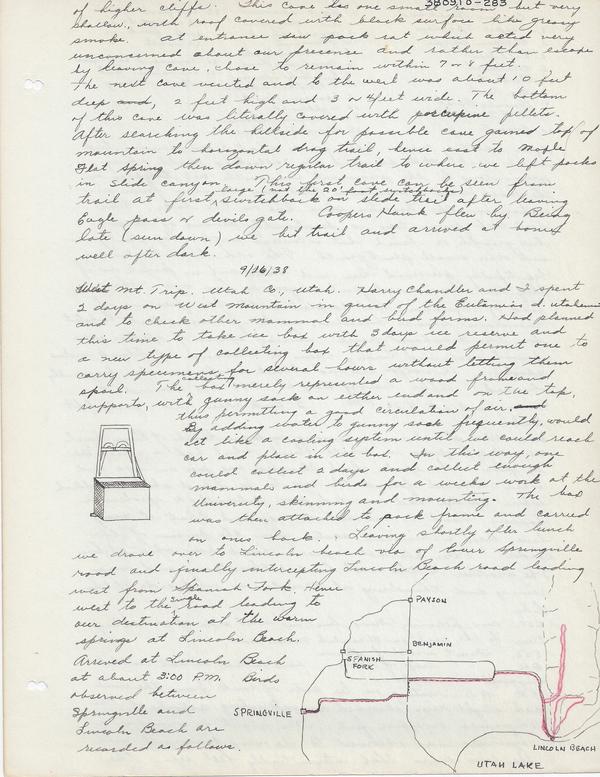 380910-283
of higher cliffs. This cave has one small room but very
shallow, with roof covered with black surface like greasy
smoke. At entrance saw pack rat which acted very
unconcerned about our presence and rather than escape
by leaving cave, chose to remain within 7 or 8 feet.
The next cave visited and to the west was about 10 feet
deep and, 2 feet high and 3 or 4 feet wide. The bottom
of this cave was literally covered with porcupine pellets.
After searching the hillside for possible cave gained top of
mountain to horizontal drag trail, hence east to Maple
Flat spring then down regular trail to where we left packs
in Slide canyon. This first cave can be seen from
large (not the 20 foot switchbacks)
trail at first switchback on slide trail after leaving
Eagle pass or devils gate. Coopers Hawk flew by. Being
late (sun down) we hit trail and arrived at home
well after dark.
9/16/38
West Mt. Trip. Utah Co., Utah. Harry Chandler and I spent
2 days on West Mountain in quest of the Eutamias d. utahensis
and to check other mammal and bird forms. Had planned
this time to take ice box with 3 days ice reserve and
a new type of collecting box that would permit one to
carry specimens for several hours without letting them
spoil. The collecting box merely represented a wood frame and
supports, with gunny sack on either end and on the top,
thus permitting a good circulation of air, and
By adding water to gunny sack frequently, would
act like a cooling system until we could reach
car and place in ice box. In this way, one
could collect 2 days and collect enough
mammals and birds for a weeks work at the
University, skinning and mounting. The box
was then attached to pack frame and carried
on ones back. Leaving shortly after lunch
we drove over to Lincoln beach via of lower Springville
road and finally intercepting Lincoln Beach road leading
west from Spanish Fork. Hence
west to the single road leading to
our destination at the warm
springs at Lincoln Beach.
Arrived at Lincoln Beach
at about 3:00 P.M. Birds
observed between
Springville and
Lincoln Beach are
recorded as follows.
PAYSON
BENJAMIN
SPANISH
FORK
SPRINGVILLE
LINCOLN BEACH
UTAH LAKE